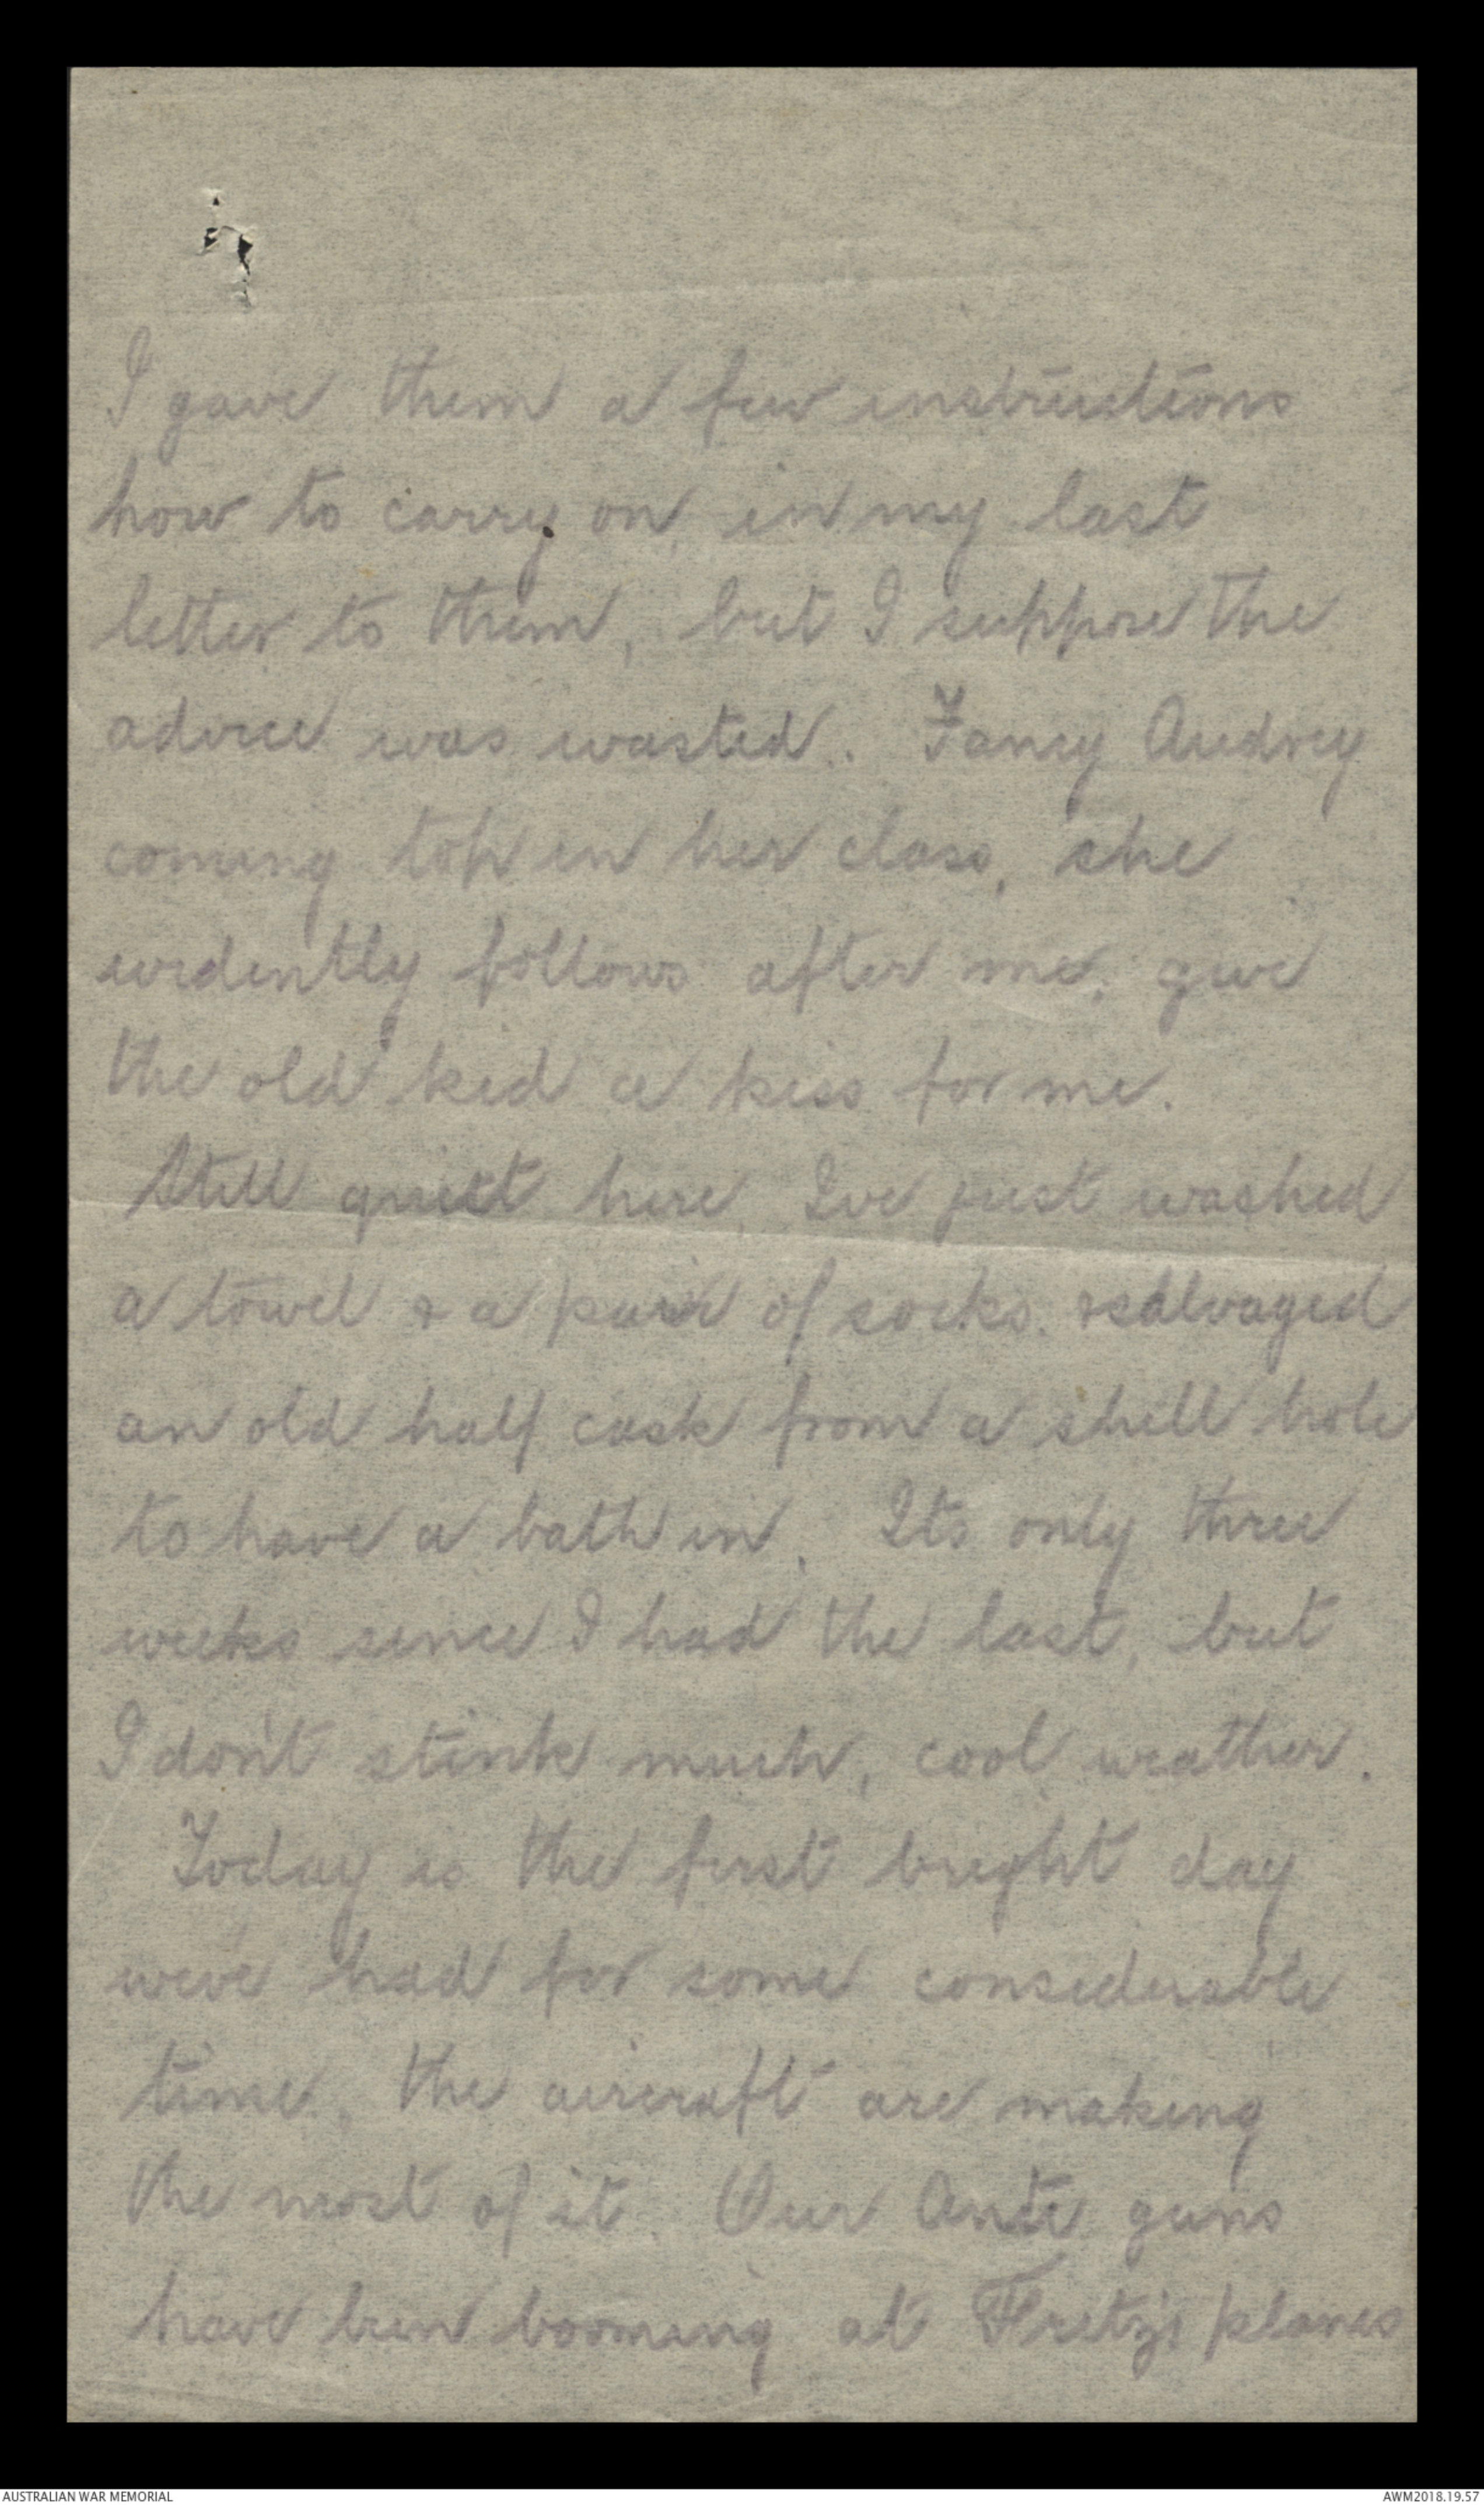 I gave them a few instructions
how to carry on in my last
letter to them, but I suppose the
advice was wasted. Fancy Audrey
coming top in her class, she
evidently follows after me, give
the old kid a kiss for me.
Still quiet here, I've just washed
a towel & a pair of socks. & salvaged
an old half cask from a shell hole
to have a bath in. Its only three
weeks since I had the last, but
I don't stink much, cool weather.
Today is the first bright day
we've had for some considerable
time, the aircraft are making
the most of it. Our Anti guns
have been booming at Fritz's planes
AUSTRALIAN WAR MEMORIAL
AWM2018.19.57